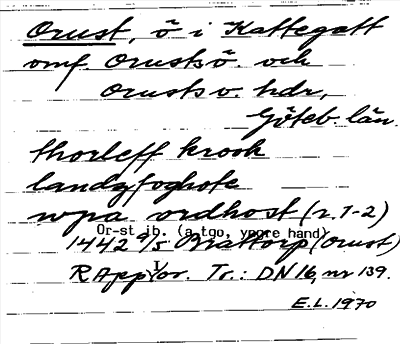 Orust, ö i Kattegatt
omf. Orusts ö. och
Orusts v. hdr,
Göteb. län.
thorleff krook
landzfoghote
wpa ordhost (r. 1-2)
Or-st jb. (a tgo, yngre hand)
1442 9/5 Brattorp (Orust)
RApp or. Tr.: DN 16, nr 139.
E.L. 1970